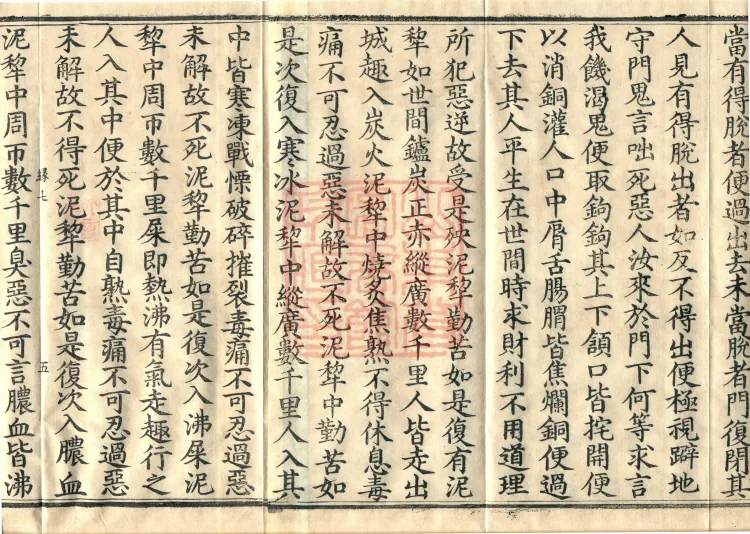 當有得脫者便過出去未當脫者門復閉其
人見有得脫出者如反不得出便極視躃地
守門鬼言咄死惡人汝來於門下何等求言
我饑渴鬼便取鉤鉤其上下頷口皆挓開便
以消銅灌人口中脣舌腸胃皆焦爛銅便過
下去其人平生在世間時求財利不用道理
所犯惡逆故受是殃泥犂勤苦如是復有泥
犂如世間鑪炭正赤縱廣數千里人皆走出
城趣入炭火泥犂中燒炙焦熟不得休息毒
痛不可忍過惡未解故不死泥犂中勤苦如
是次復入寒冰泥犂中縱廣數千里人入其
中皆寒凍戰慄破碎摧裂毒痛不可忍過惡
未解故不死泥犂勤苦如是復次入沸屎泥
犂中周帀數千里屎即熱沸有氣走趣行之
人入其中便於其中自熟毒痛不可忍過惡
未解故不得死泥犂勤苦如是復次入膿血
緣七 五
泥犂中周帀數千里臭惡不可言膿血皆沸